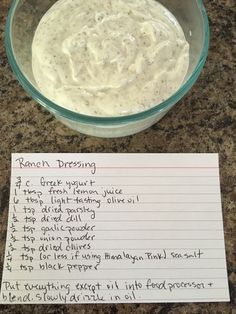 Ranch Dressing
3/4 c Greek yogurt
1 tbsp fresh lemon juice
6 tbsp light-tasting olive oil
1 tsp dried parsley
1/2 tsp dried dill
1/2 tsp garlic powder
1/2 tsp onion powder
1/2 tsp dried chives
1/2 tsp (or less if using Himalayan Pink) sea salt
1/4 tsp black pepper
Put everything except oil into food processor +
blend. Slowly drizzle in oil